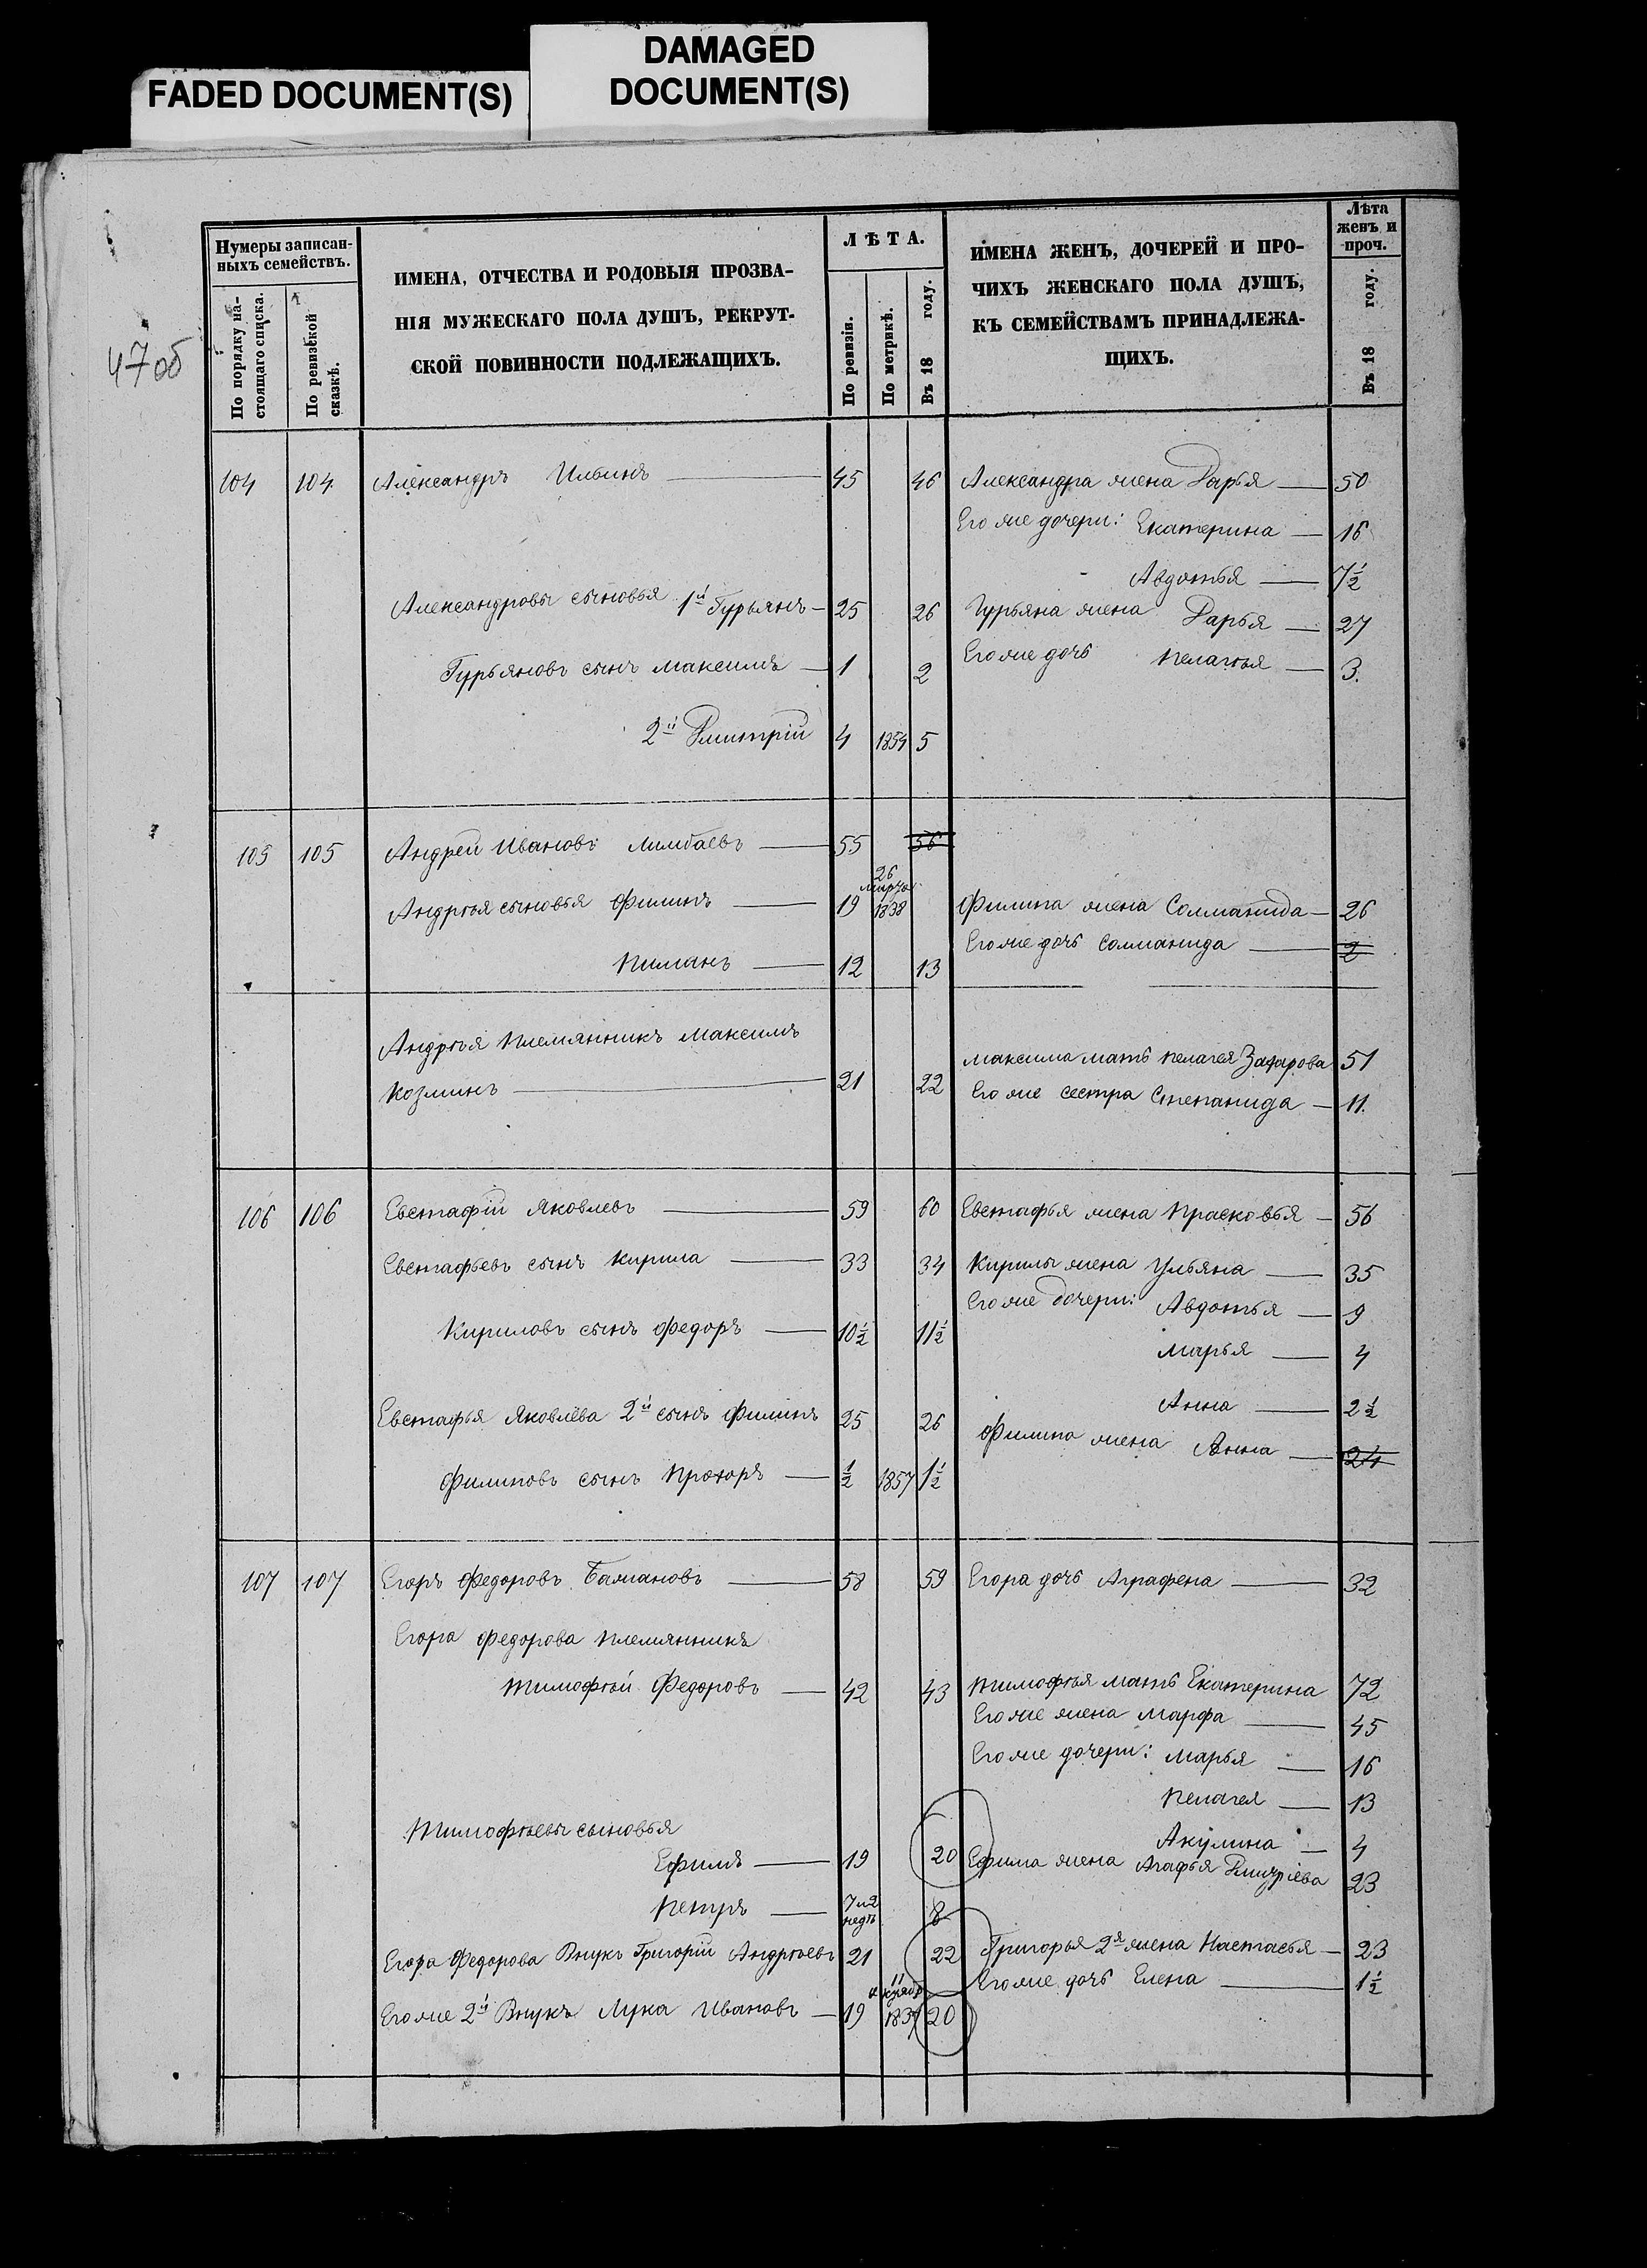 FADED DOCUMENT(S)
DAMAGED
DOCUMENT(S)
47 об
Нумеры записан-
ныхъ семействъ.
По порядку на-
стоящаго списка.
По ревизской
сказкѣ.
ИМЕНА, ОТЧЕСТВА И РОДОВЫЯ ПРОЗВА-
НІЯ МУЖЕСКАГО ПОЛА ДУШЪ, РЕКРУТ-
СКОЙ ПОВИННОСТИ ПОДЛЕЖАЩИХЪ.
ЛѢТА.
По ревизіи.
По метрикѣ.
Въ 18 году.
ИМЕНА ЖЕНЪ, ДОЧЕРЕЙ И ПРО-
ЧИХЪ ЖЕНСКАГО ПОЛА ДУШЪ,
КЪ СЕМЕЙСТВАМЪ ПРИНАДЛЕЖА-
ЩИХЪ.
Лѣта
женъ и
проч.
Въ 18 году.
104 104 Александръ Ильинъ 45 46 Александра жена Дарья 50
Его же дочери: Екатерина 16
Авдотья 7½
Александровы сыновья 1й Гурьянъ 25 26 Гурьяна жена Дарья 27
Гурьяновъ сынъ Максимъ 1 2 Его же дочь Пелагѣя 3.
2й Дмитрій 4 1854 5
105 105 Андрей Ивановъ 55 56
Андрѣя сыновья Филипъ 19 26 марта 1838 Филипа жена Соломанида 26
Его же дочь Соломанида 2
Пиманъ 12 13
Андрѣя племянникъ Максимъ
Козминъ 21 22 Максима мать Пелагея Захарова 51
Его же сестра Степанида 11.
106 106 Евстафій Яковлевъ 59 60 Евстафья жена Прасковья 56
Евстафьевъ сынъ Кирила 33 34 Кирилы жена Ульяна 35
Его же дочери: Авдотья 9
Кириловъ сынъ Федоръ 10½ 11½
Марья 4
Анна 2½
Евстафья Яковлева 2й сынъ Филипъ 25 26 Филипа жена Анна 24
Филиповъ сынъ Прохоръ ½ 1857 1½
107 107 Егоръ Федоровъ Бажановъ 58 59 Егора дочь Аграфена 32
Егора Федорова племянникъ
Тимофѣй Федоровъ 42 43 Тимофѣя мать Екатерина 72
Его же жена Марфа 45
Его же дочери: Марья 16
Пелагея 13
Тимофѣевы сыновья
Акулина 4
Ефимъ 19 20 Ефима жена Агафья Дмитріева 23
Петръ 7 и 2 недѣ 8
Егора Федорова Внукъ Григорій Андрѣевъ 21 22 Григорья 2я жена Настасья 23
Его же дочь Елена 1½
Его же 2й Внукъ Лука Ивановъ 19 1837 20